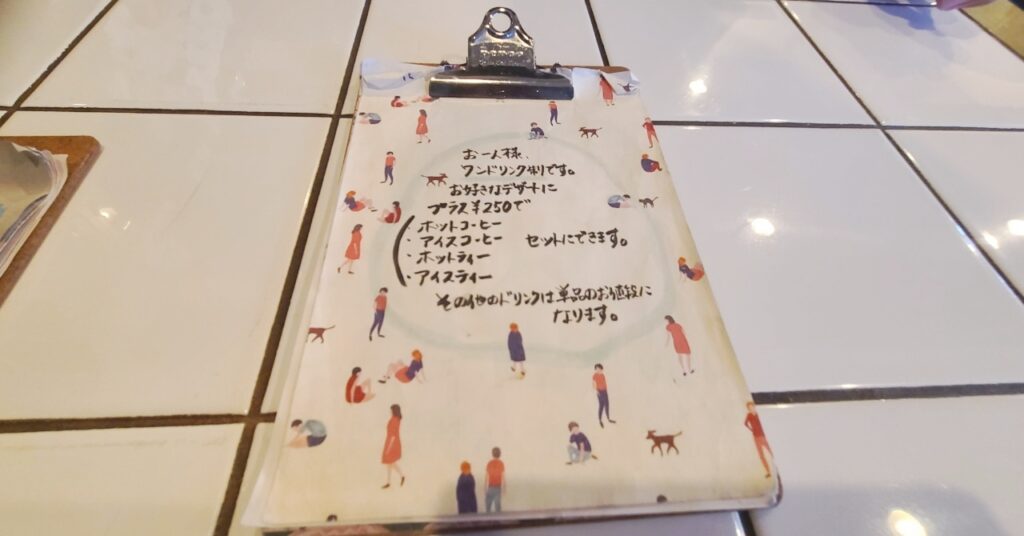 お一人様、
ワンドリンク制です。
お好きなデザートに
プラス¥250で
・ホットコーヒー
・アイスコーヒー セットにできます。
・ホットティー
・アイスティー
その他のドリンクは単品のお値段に
なります。